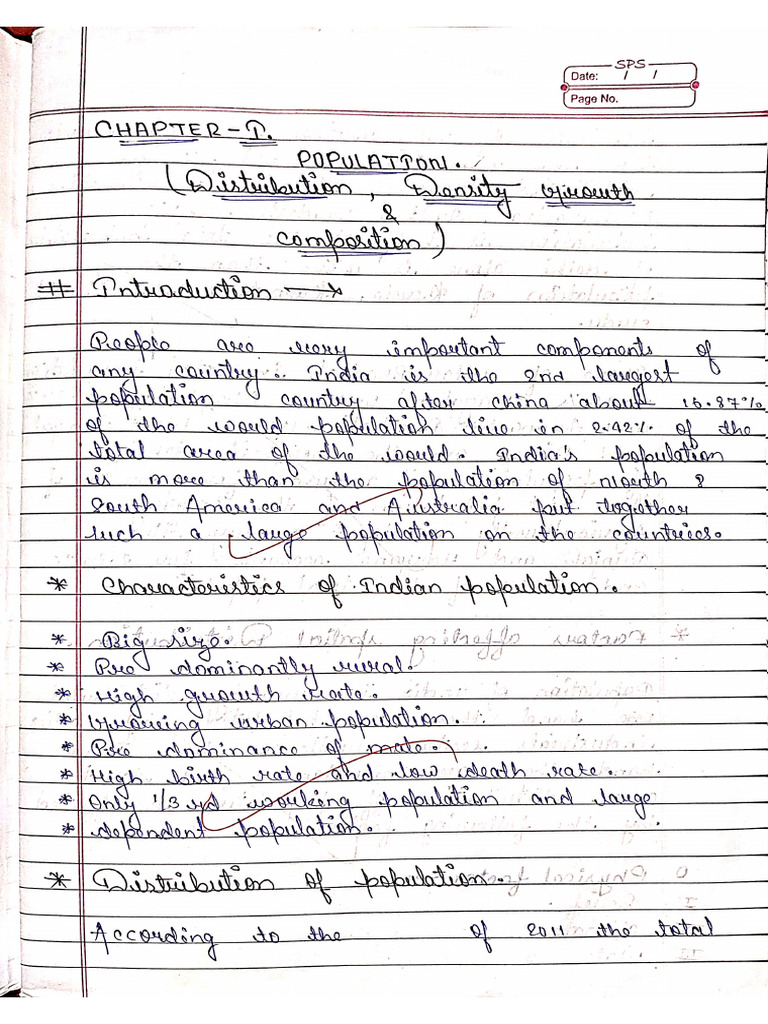 SPS
Date: / /
Page No.
CHAPTER - I.
POPULATION.
(Distribution, Density Growth
&
composition)
# Introduction →*
People are very important components of
any country. India is the 2nd largest
population country after china about 16.87%
of the would population live in 2.42% of the
total area of the would. India's population
is more than the population of North &
South America and Australia put together
such a large population on the countries.
* Characteristics of Indian population.
* Big size.
* Pre dominantly rural.
* High growth rate.
* Growing urban population.
* Pre dominance of mate.
* High birth rate and low death rate.
* Only 1/3 rd working population and large
* dependent population.
* Distribution of population.
According to the of 2011 the total